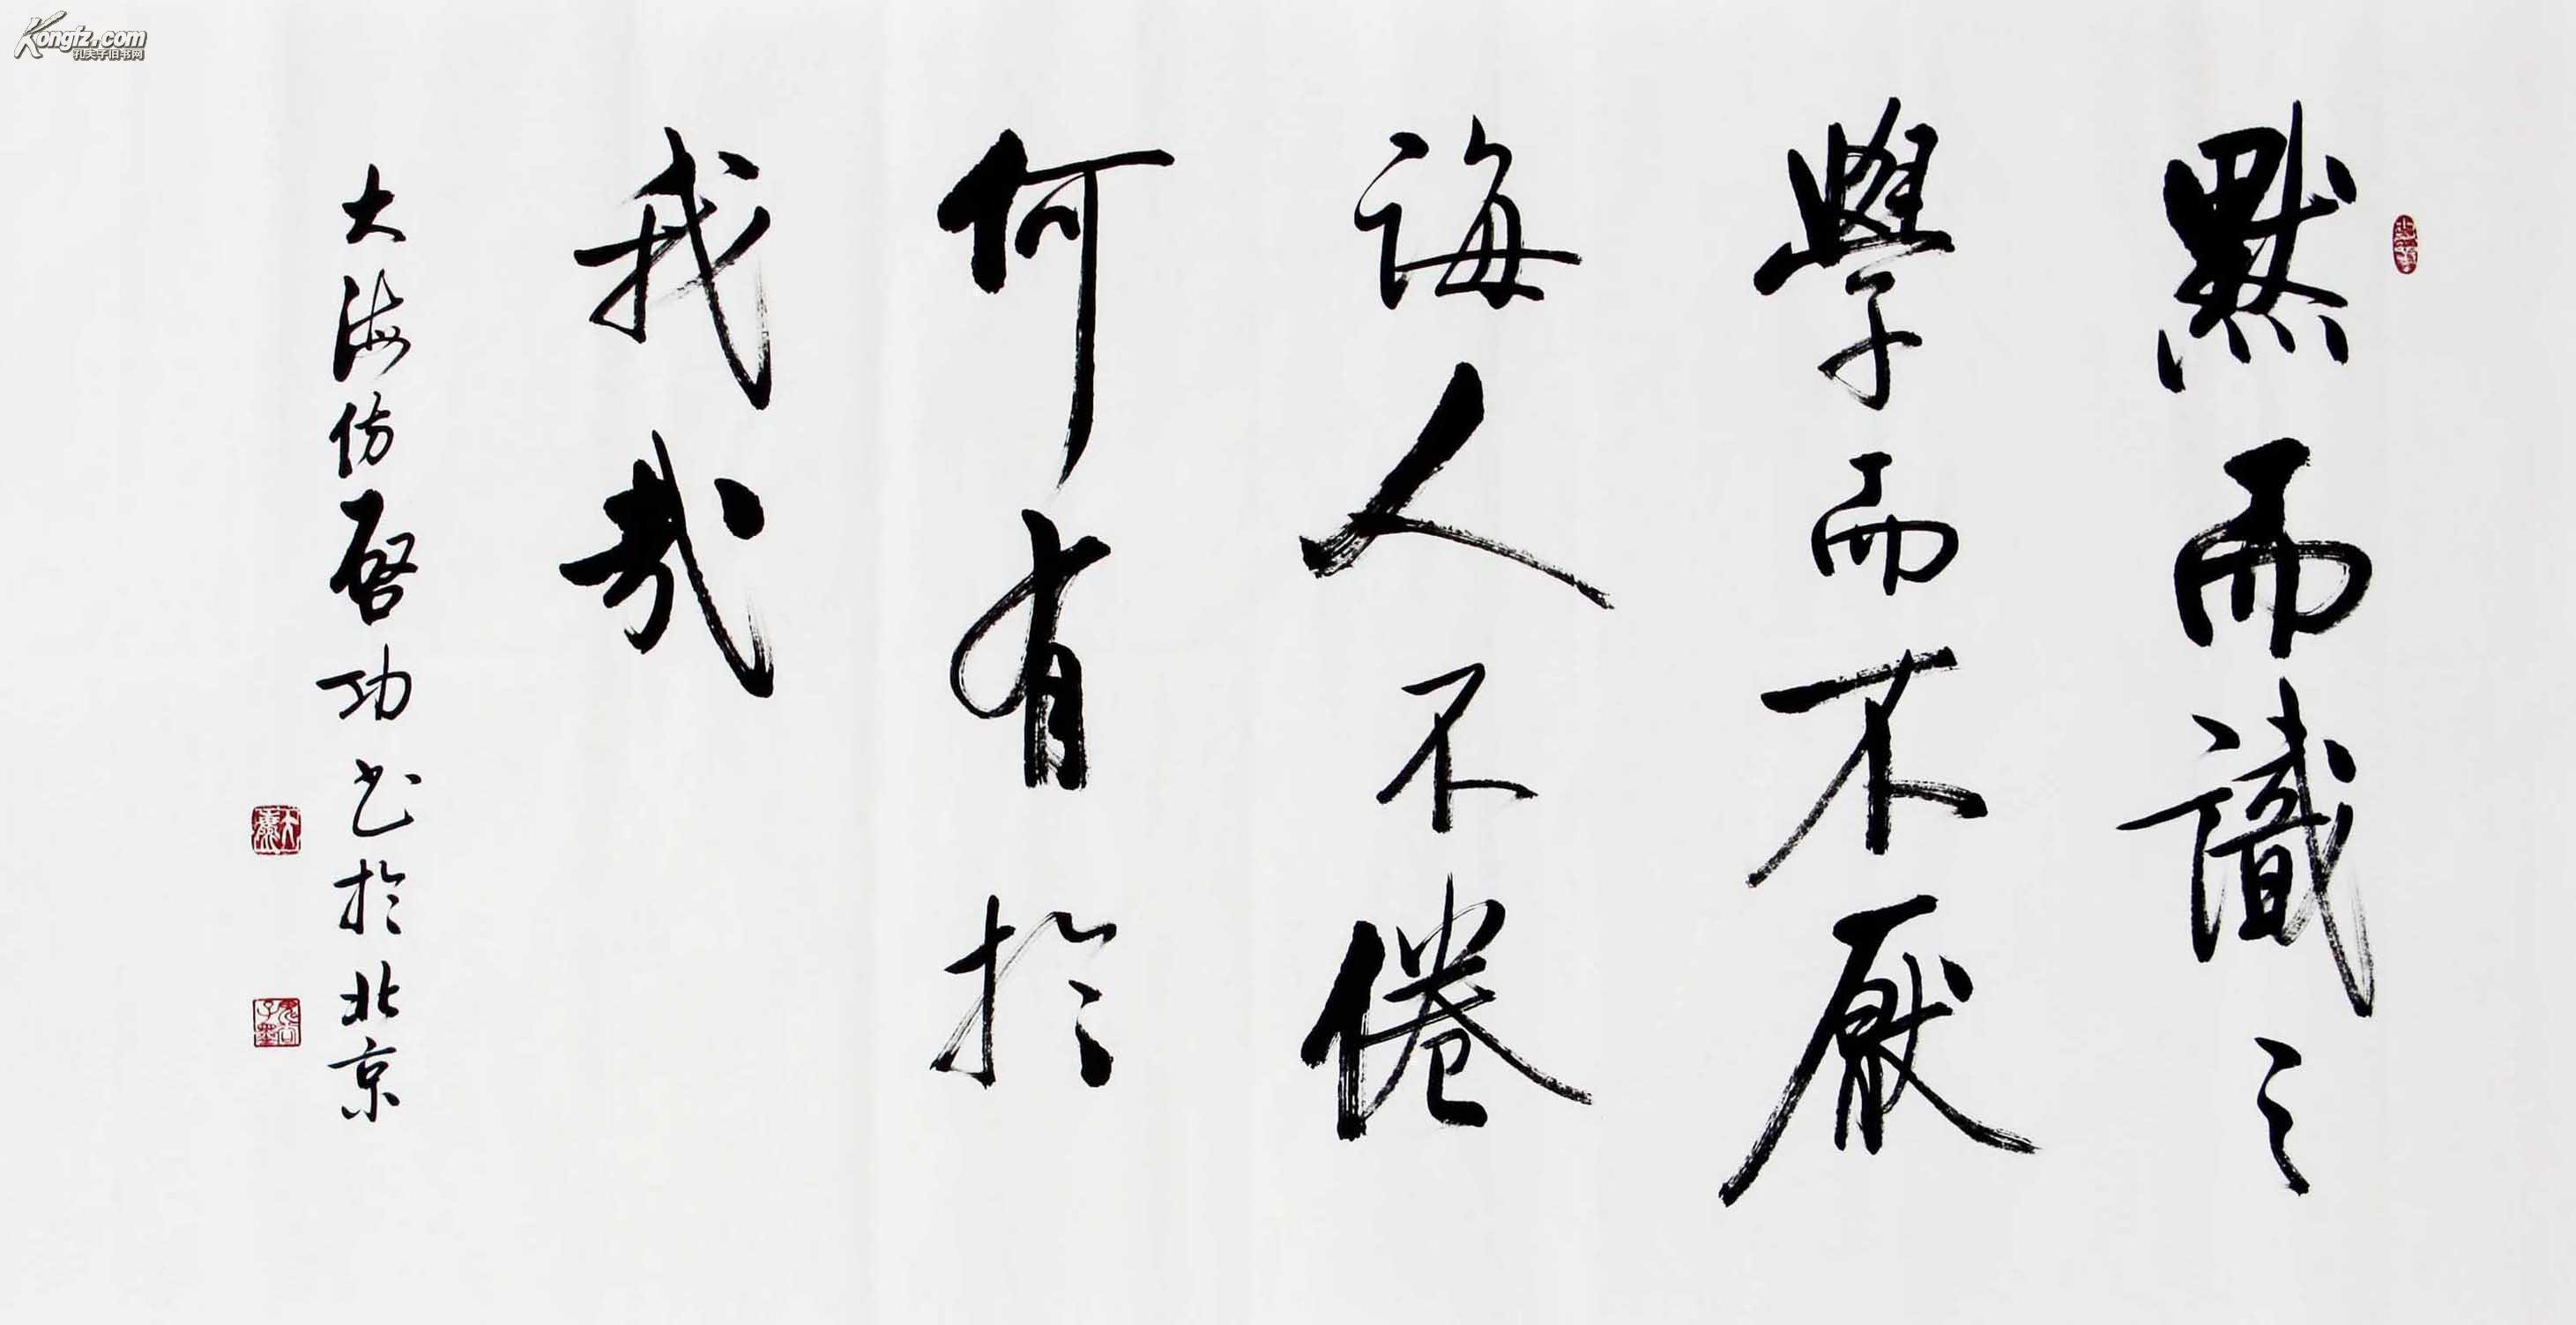 Kongfz.com
孔夫子旧书网
默而識之
學而不厭
誨人不倦
何有於
我哉
大海仿啓功書於北京